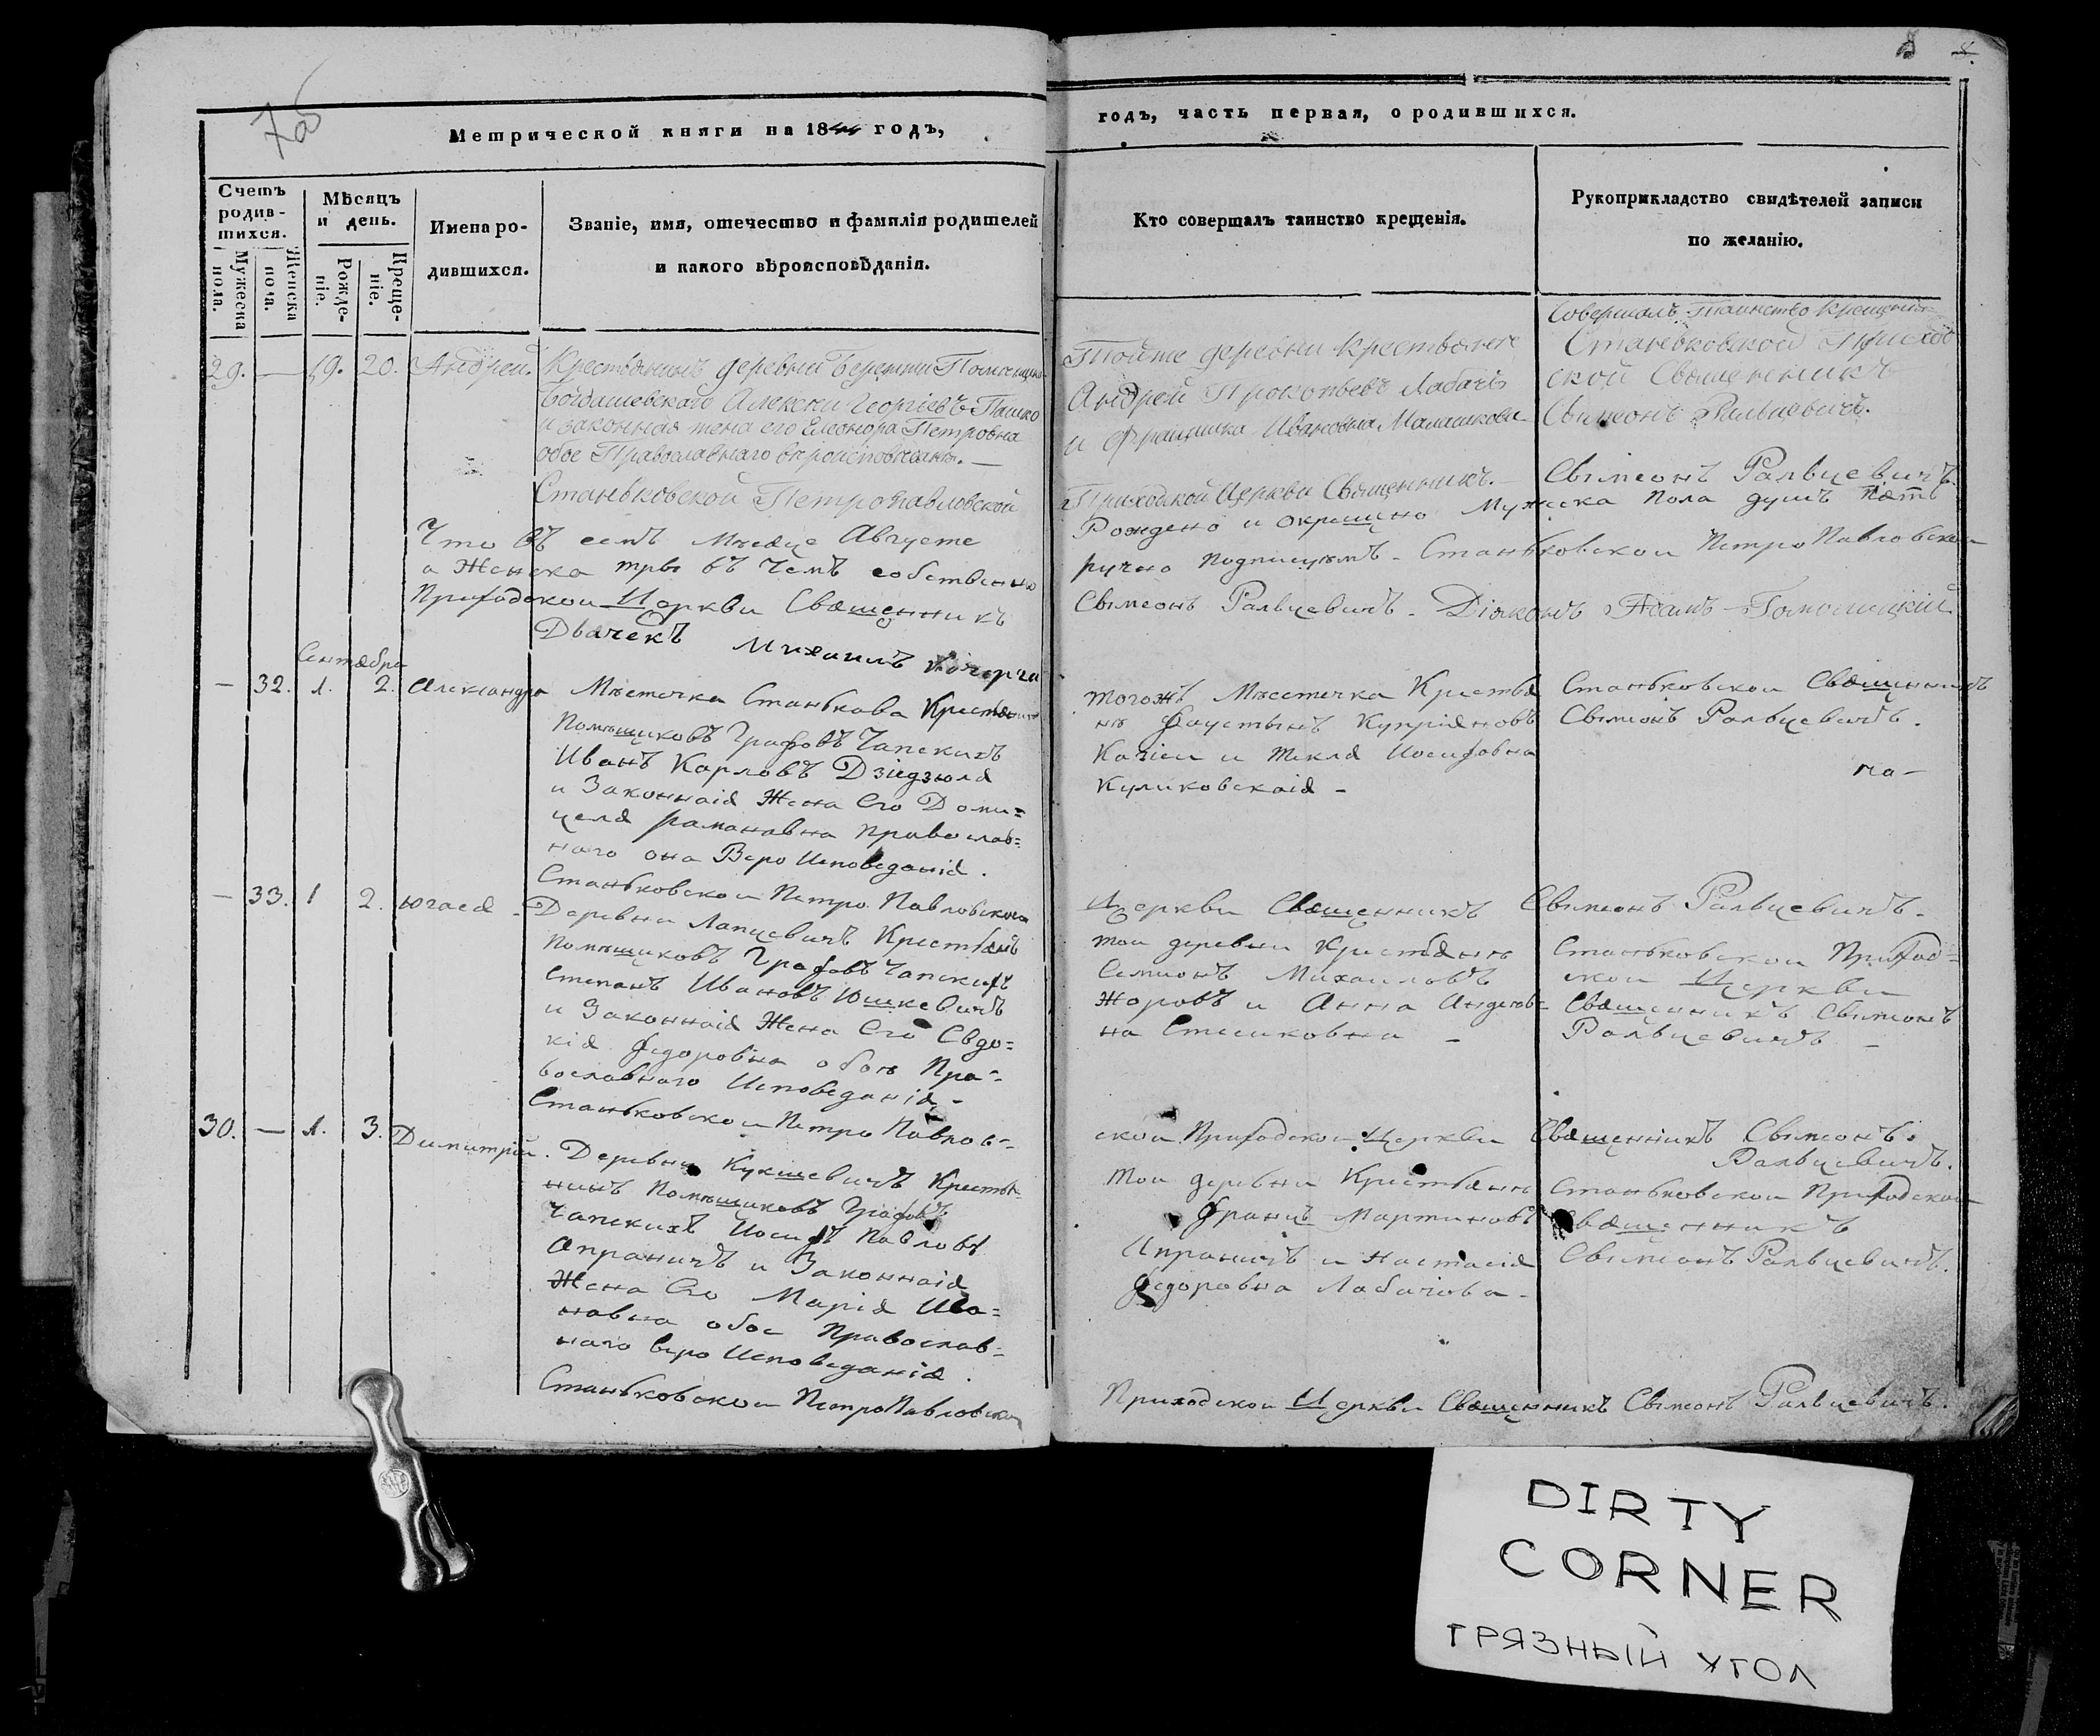 8
Метрической книги на 1844 годъ,
годъ, часть первая, о родившихся.
Счетъ родив-шихся.
Мужеска пола.
Женска пола.
Мѣсяцъ и день.
Рожде-ніе.
Креще-ніе.
Имена ро-дившихся.
Званіе, имя, отечество и фамилія родителей
и какого вѣроисповѣданія.
Кто совершалъ таинство крещенія.
Рукоприкладство свидѣтелей записи
по желанію.
29. — 19. 20. Андрей.
Крестьянинъ деревни
Алексей Георгіевъ Пашко
и законная жена его Елеонора Петровна
обое Православнаго вѣроисповѣданія. —
Станьковской Петропавловской
Тойже деревни крестьяне
Андрей Прокопьевъ Лабачъ
и Францишка Ивановна
Совершалъ Таинство крещенія
Станьковской Приход
ской Священникъ
Свимеонъ Ральцевичъ.
Приходской Церкви Священникъ. —
Свимеонъ Ральцевичъ
Что въ семъ Мѣсяце Августе
Рождено и окрещено Мужеска пола душъ пять
а Женска три въ чемъ собственно
ручно подписуемъ - Станьковской Петро Павловской
Приходской Церкви Священникъ
Свимеонъ Ральцевичъ - Діяконъ
Дьячекъ Михаилъ Кочерга
Сентября
— 32. 1. 2. Александра
Мѣстечка Станькова
Помѣщиковъ Графовъ Чапскихъ
Иванъ Карловъ Дзіедзюля
и Законная Жена Его Доми=
целя Рамановна православ=
наго она Веро Исповеданія.
Станьковской Петро Павловской
тогожъ Мѣстечка Крестья
не Фаустынъ Купріяновъ
и Текля Иосифовна
Куликовская -
Станьковской Священникъ
Свимеонъ Ральцевичъ.
на-
Церкви Священникъ Свимеонъ Ральцевичъ.
— 33. 1 2.
Деревни Лапцевичъ
Помѣщиковъ Графовъ Чапскихъ
Степанъ Ивановъ Юшкевичъ
и Законная Жена Его Евдо=
кія Федоровна обои Пра-
вославнаго Исповеданія -
Станьковской Петро Павлов-
той деревни Крестьяне
Семионъ Михаиловъ
Жоровъ и Анна
на
Станьковской Приход=
ской Церкви
Священникъ Свимеонъ
Ральцевичъ -
ской Приходской Церкви Священникъ Свимеонъ
Ральцевичъ.
30. — 1. 3. Димитрій.
Деревни Кукшевичъ Крестья-
нинъ Помѣщиковъ Графовъ
Чапскихъ Иосифъ Павловъ
Апраничъ и Законная
Жена Его Марія Ива=
новна обое Православ-
наго веро Исповеданія.
Станьковской ПетроПавловской
Той деревни Крестьяне
Францъ Мартиновъ
Апраничъ и Настасія
Федоровна Лабачова -
Станьковской Приходской
Священникъ
Свимеонъ Ральцевичъ.
Приходской Церкви Священникъ Свимеонъ Ральцевичъ.
DIRTY
CORNER
ГРЯЗНЫЙ УГОЛ